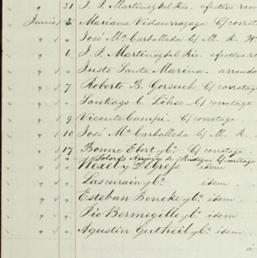 " " 31 J. P. Martinez del Rio.
Junio 2 Mariano Vidaurrazaga C/ corretage
" " " José Mª Carballeda C/ M. R.
" " 6 J. P. Martinez del Rio.
" " " Justo Santa Marina.
" " 7 Roberto B. Gorsuch C/ corretage
" " " Santiago C. Lohse C/ corretage
" " 9 Vicente Campi C/ corretage
" " 10 José Mª Carballeda C/ M. R.
" " 17 Bonne Ebert y Cª C/ corretage
" " " Wexel y De Gress idem
" " " Lascurain y Cª idem
" " " Esteban Benecke y Cª idem.
" " " Pio Bermejillo y Cª idem.
" " " Agustin Gutheil y Cª idem.